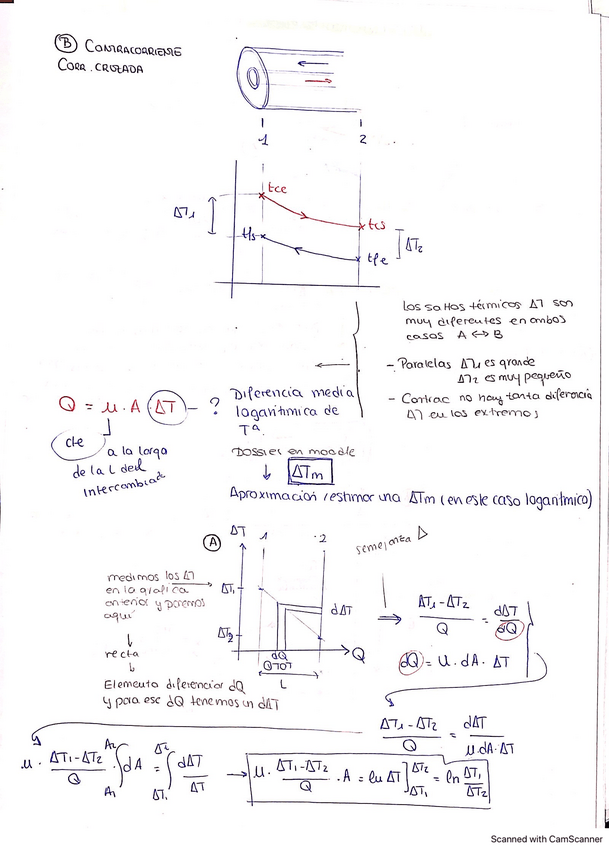 B CONTRACORRIENTE
CORR. CRUZADA
1
2
ΔT₁
tce
tcs
tfs
tfe
ΔT₂
Los saltos térmicos ΔT son
muy diferentes en ambos
casos A ↔ B
- Paralelas ΔT₁ es grande
ΔT₂ es muy pequeño
- Contrac no hay tanta diferencia
ΔT en los extremos
Q = u · A · ΔT - ?
Diferencia media
logarítmica de
Tª.
cte
a la larga
de la L del
intercambiad
Dossier en moodle
↓ ΔTm
Aproximación / estimar una ΔTm (en este caso logarítmica)
A
ΔT
1
2
semejanza Δ
medimos los ΔT
en la gráfica
anterior y ponemos
aquí
↓
recta
↓
Elemento diferencial dQ
y para ese dQ tenemos un dΔT
ΔT₁
ΔT₂
dΔT
dQ
QTOT
Q
L
⇒ (ΔT₁ - ΔT₂)/Q = dΔT/dQ
dQ = U · dA · ΔT
(ΔT₁ - ΔT₂)/Q = dΔT/(u·dA·ΔT)
u · (ΔT₁ - ΔT₂)/Q ∫A₁A₂ dA = ∫ΔT₁ΔT₂ dΔT/ΔT → u · (ΔT₁ - ΔT₂)/Q · A = ln ΔT]ΔT₁ΔT₂ = ln ΔT₁/ΔT₂
Scanned with CamScanner